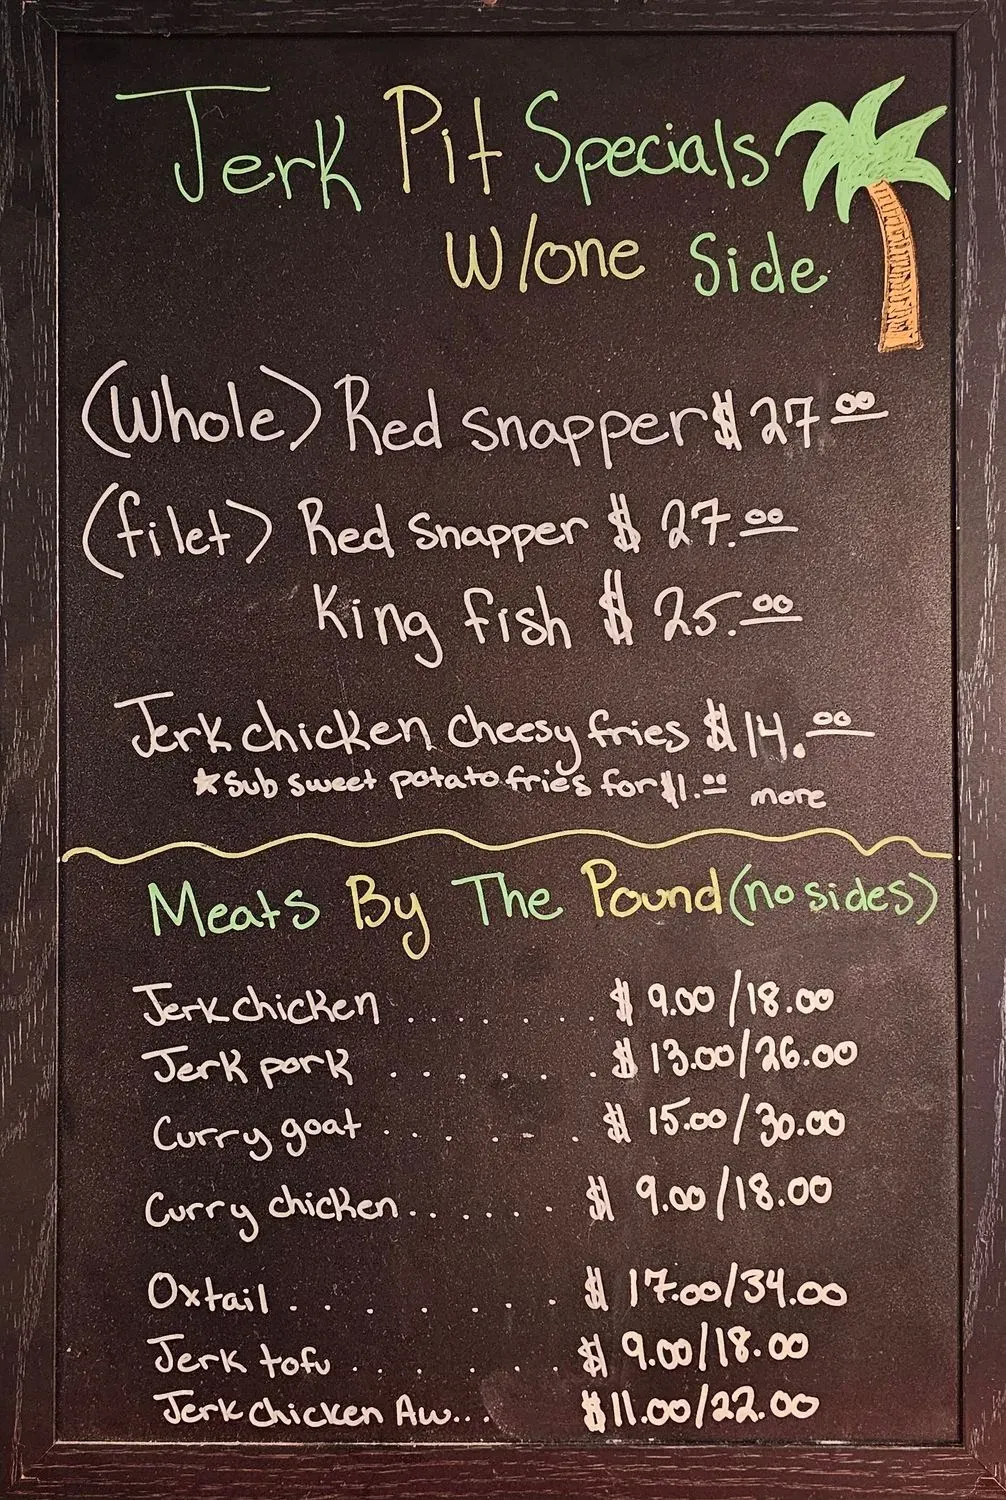 Jerk Pit Specials
W/one Side
(Whole) Red Snapper $27.00
(filet) Red Snapper $27.00
King fish $25.00
Jerk chicken cheesy fries $14.00
*Sub sweet potato fries for $1.00 more
Meats By The Pound (no sides)
Jerk chicken ....... $9.00/18.00
Jerk pork ...... $13.00/26.00
Curry goat ...... $15.00/30.00
Curry chicken ...... $9.00/18.00
Oxtail ....... $17.00/34.00
Jerk tofu ....... $9.00/18.00
Jerk chicken Aw... $11.00/22.00